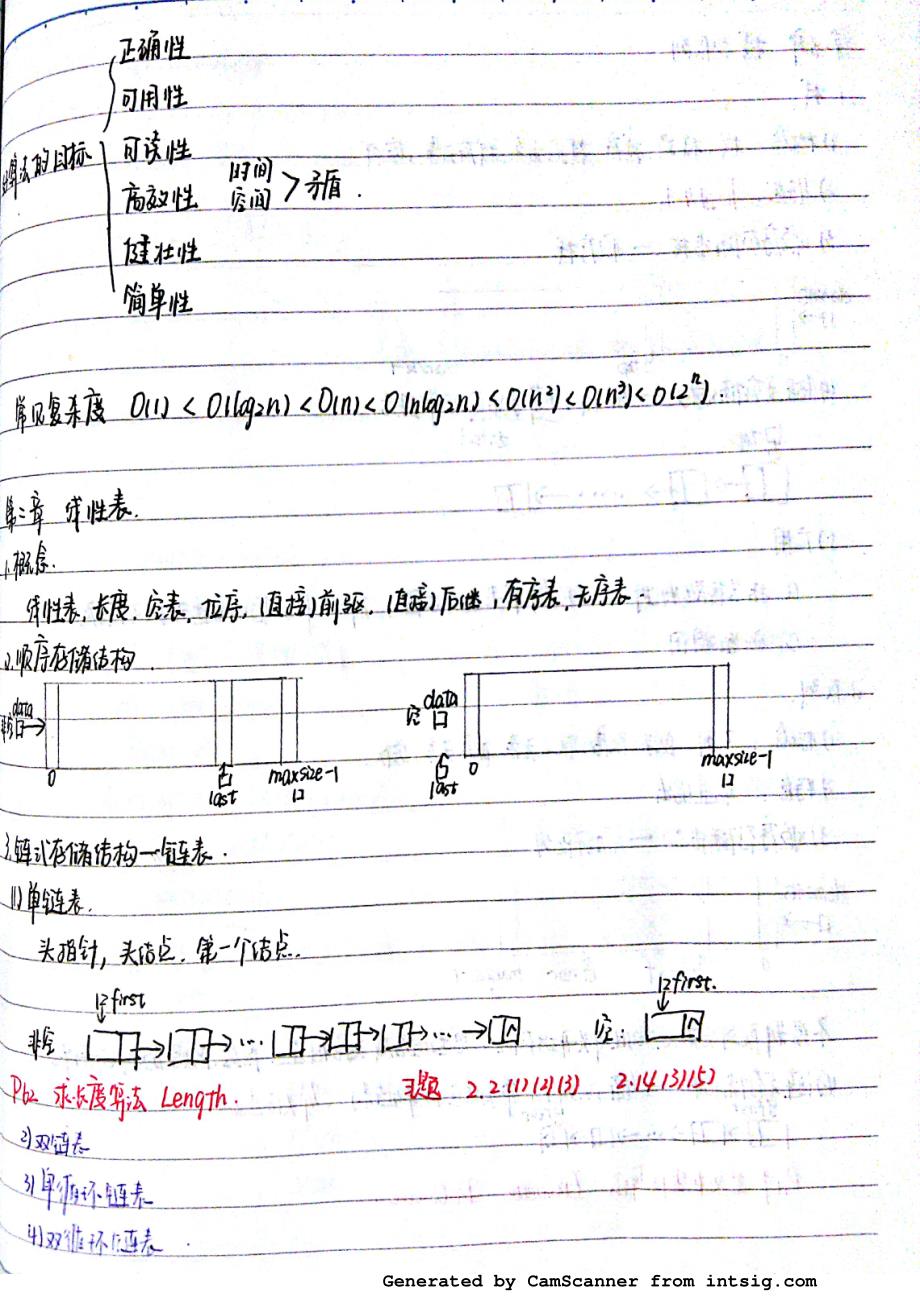 正确性
可用性
算法的目标
可读性
高效性 时间 空间 > 矛盾.
健壮性
简单性
常见复杂度 O(1) < O(log₂n) < O(n) < O(nlog₂n) < O(n²) < O(n³) < O(2ⁿ).
第二章 线性表.
1.概念.
线性表, 长度, 空表, 位序, (直接)前驱, (直接)后继, 有序表, 无序表.
2.顺序存储结构.
非空 data 0 last maxsize-1
空 data last 0 maxsize-1
3.链式存储结构—链表.
(1)单链表.
头指针, 头结点, 第一个结点.
first first.
非空 ... ... 空:
P62 求长度算法 Length. 习题 2.2.(1)(2)(3) 2.14(3)(5)
2)双链表
3)单循环链表
4)双循环链表.
Generated by CamScanner from intsig.com